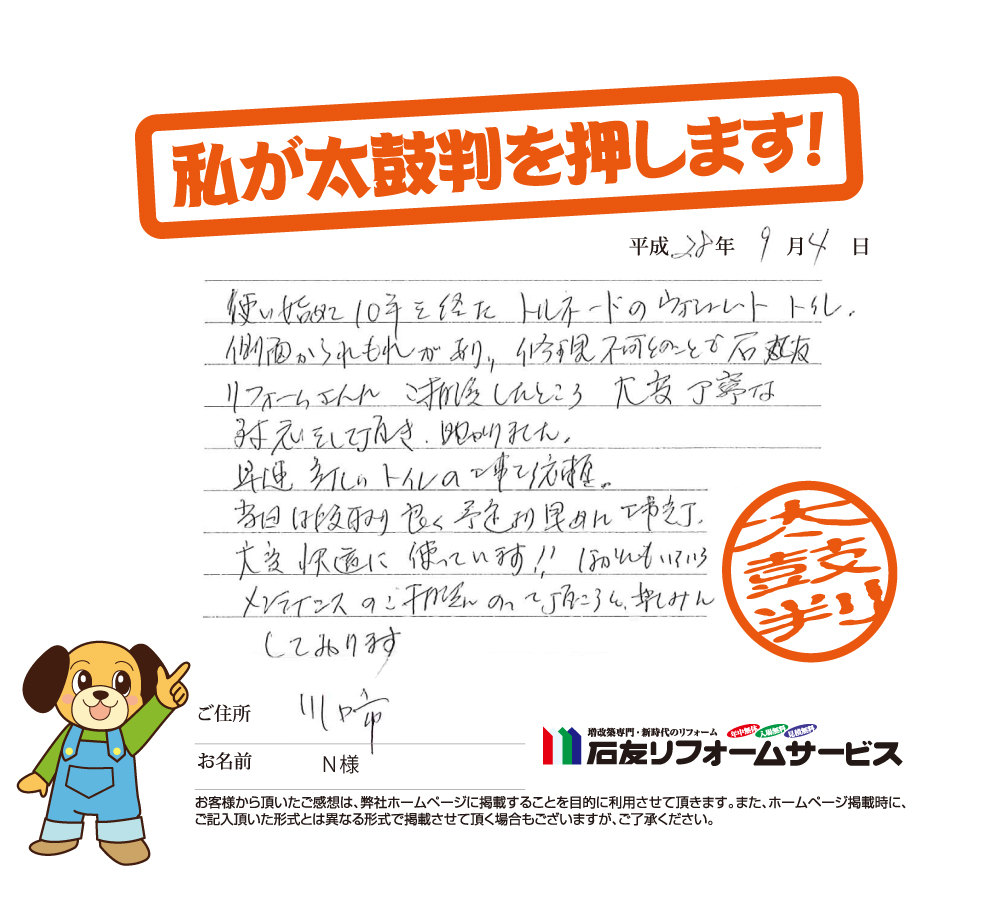 私が太鼓判を押します!
平成28年 9月4日
使い始めて10年を経た トルネードのウォシュレット トイレ、
側面から水もれがあり、修理不可とのことで石友
リフォームさんに ご相談したところ 大変丁寧な
対応をして頂き、助かりました。
早速 新しいトイレの工事を依頼。
当日は段取り良く予定より早めに工事完了、
大変快適に使っています!! ほかにもいろいろ
メンテイナンスのご相談にのって頂こうと、楽しみに
しております
太鼓判
ご住所 川口市
お名前 N様
増改築専門・新時代のリフォーム 年中無休 入場無料 見積無料
石友リフォームサービス
お客様から頂いたご感想は、弊社ホームページに掲載することを目的に利用させて頂きます。また、ホームページ掲載時に、
ご記入頂いた形式とは異なる形式で掲載させて頂く場合もございますが、ご了承ください。